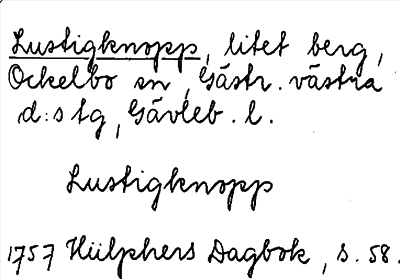 Lustigknopp, litet berg,
Ockelbo sn, Gästr. västra
d:s tg, Gävleb. l.
Lustigknopp
1757 Hülphers Dagbok, s. 58.